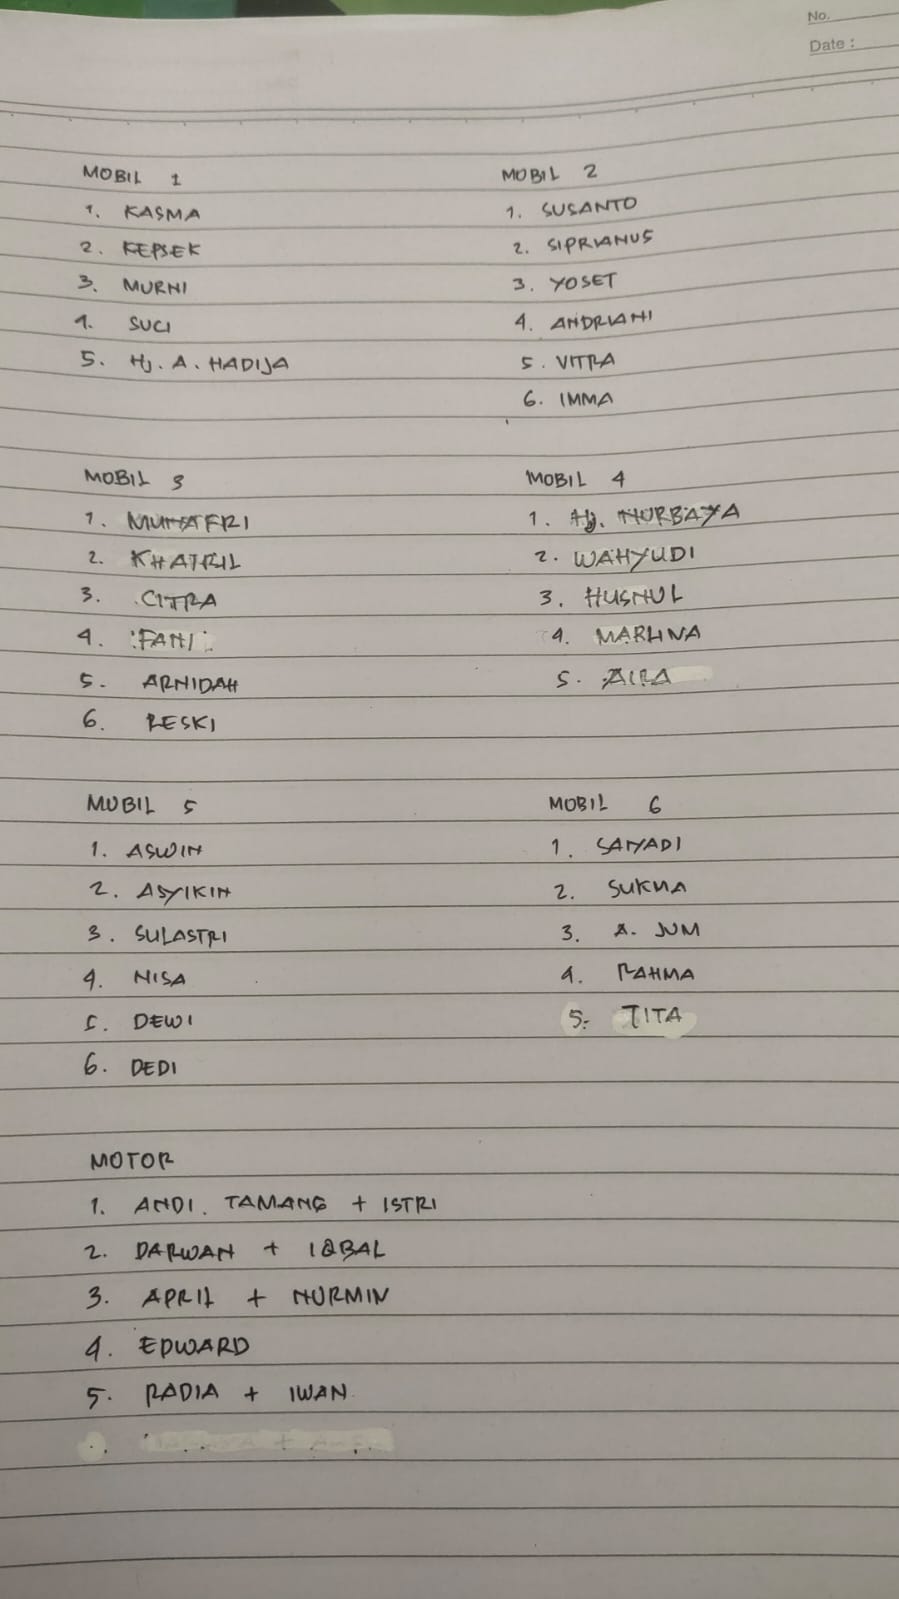 No.
Date :
MOBIL 1
1. KASMA
2. KEPSEK
3. MURNI
4. SUCI
5. Hj. A. HADIJA
MOBIL 2
1. SUSANTO
2. SIPRIANUS
3. YOSET
4. ANDRIANI
5. VITRA
6. IMMA
MOBIL 3
1. MUHAFRI
2. KHAIRIL
3. CITRA
4. FANI
5. ARNIDAH
6. RESKI
MOBIL 4
1. Hj. NURBAYA
2. WAHYUDI
3. HUSNUL
4. MARLINA
5. AIRA
MOBIL 5
1. ASWIN
2. ASYIKIN
3. SULASTRI
4. NISA
5. DEWI
6. DEDI
MOBIL 6
1. SANADI
2. SUKMA
3. A. JUM
4. RAHMA
5. TITA
MOTOR
1. ANDI. TAMANG + ISTRI
2. DARWAN + IQBAL
3. APRIL + NURMIN
4. EDWARD
5. RADIA + IWAN